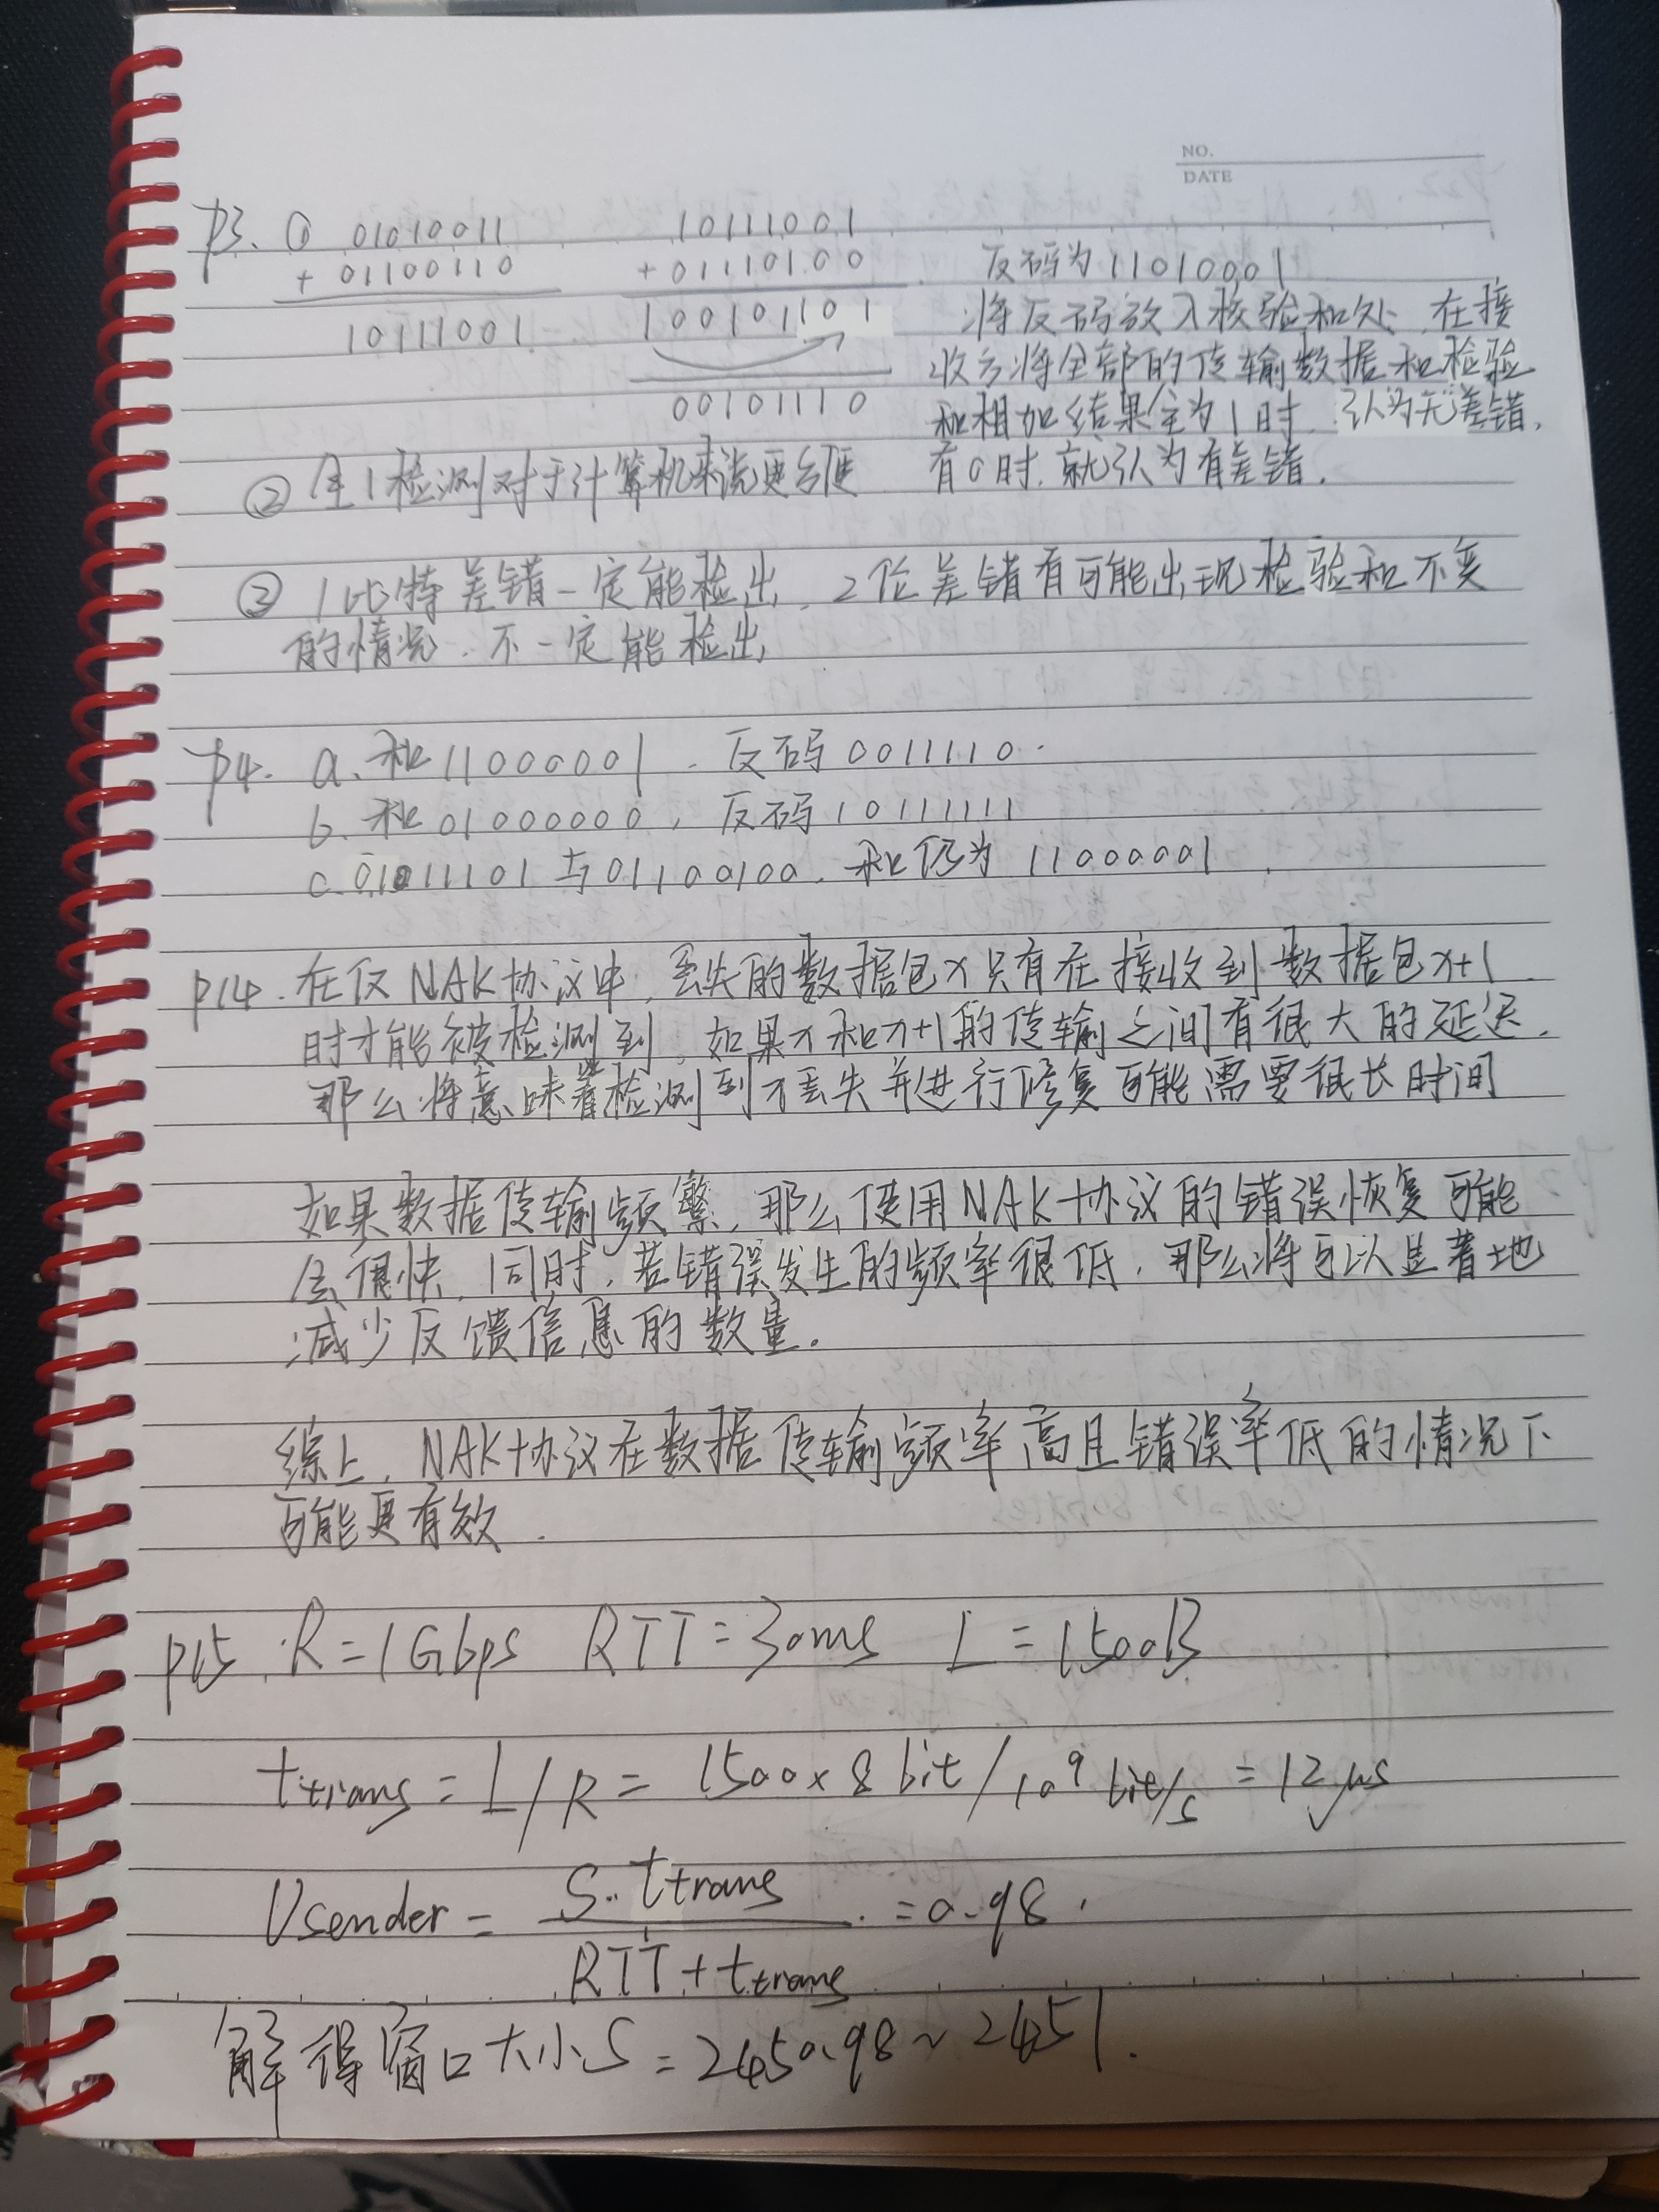 NO.
DATE
P3. ① 01010011
+ 01100110
10111001
10111001
+ 01110100
100101101
00101110
反码为11010001
将反码放入校验和处，在接
收方将全部的传输数据和检验
和相加结果全为1时，认为无差错，
有0时，就认为有差错．
② 全1检测对于计算机来说更方便
③ 1比特差错一定能检出，2位差错有可能出现检验和不变
的情况，不一定能检出
P4. a. 和11000001．反码0011110．
b. 和01000000，反码10111111
c. 01011101与01100100．和仍为11000001．
P14．在仅NAK协议中，丢失的数据包x只有在接收到数据包x+1
时才能被检测到，如果x和x+1的传输之间有很大的延迟．
那么将意味着检测到丢失并进行修复可能需要很长时间
如果数据传输频繁，那么使用NAK协议的错误恢复可能
会很快．同时，若错误发生的频率很低，那么将可以显著地
减少反馈信息的数量．
综上，NAK协议在数据传输频率高且错误率低的情况下
可能更有效．
P15．R=1Gbps RTT=30ms L=1500B
ttrans = L/R = 1500×8 bit/10⁹ bit/s = 12μs
Usender = S·ttrans / RTT+ttrans = 0.98．
解得窗口大小S = 2450.98 ~ 2451．